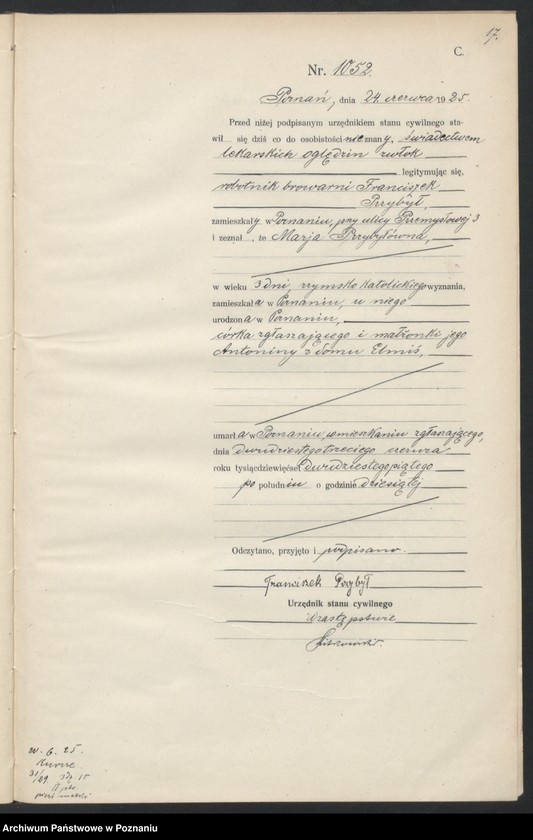 17.
C.
Nr. 1052.
Poznań, dnia 24 czerwca 1925.
Przed niżej podpisanym urzędnikiem stanu cywilnego sta-
wił się dziś co do osobistości nieznany, świadectwem
lekarskich oględzin zwłok
legitymując się,
robotnik browarni Franciszek
Przybył,
zamieszkały w Poznaniu, przy ulicy Przemysłowej 3
i zeznał, że Marja Przybyłówna,
w wieku 3 dni, rzymsko katolickiego wyznania,
zamieszkała w Poznaniu, u niego
urodzona w Poznaniu,
córka zgłaszającego i małżonki jego
Antoniny z domu Elmiś,
umarła w Poznaniu, w mieszkaniu zgłaszającego,
dnia dwudziestego trzeciego czerwca
roku tysiącdziewięćset dwudziestego piątego
po południu o godzinie dziesiątej
Odczytano, przyjęto i podpisano.
Franciszek Przybył
Urzędnik stanu cywilnego
w zastępstwie
6. 25.
Archiwum Państwowe w Poznaniu